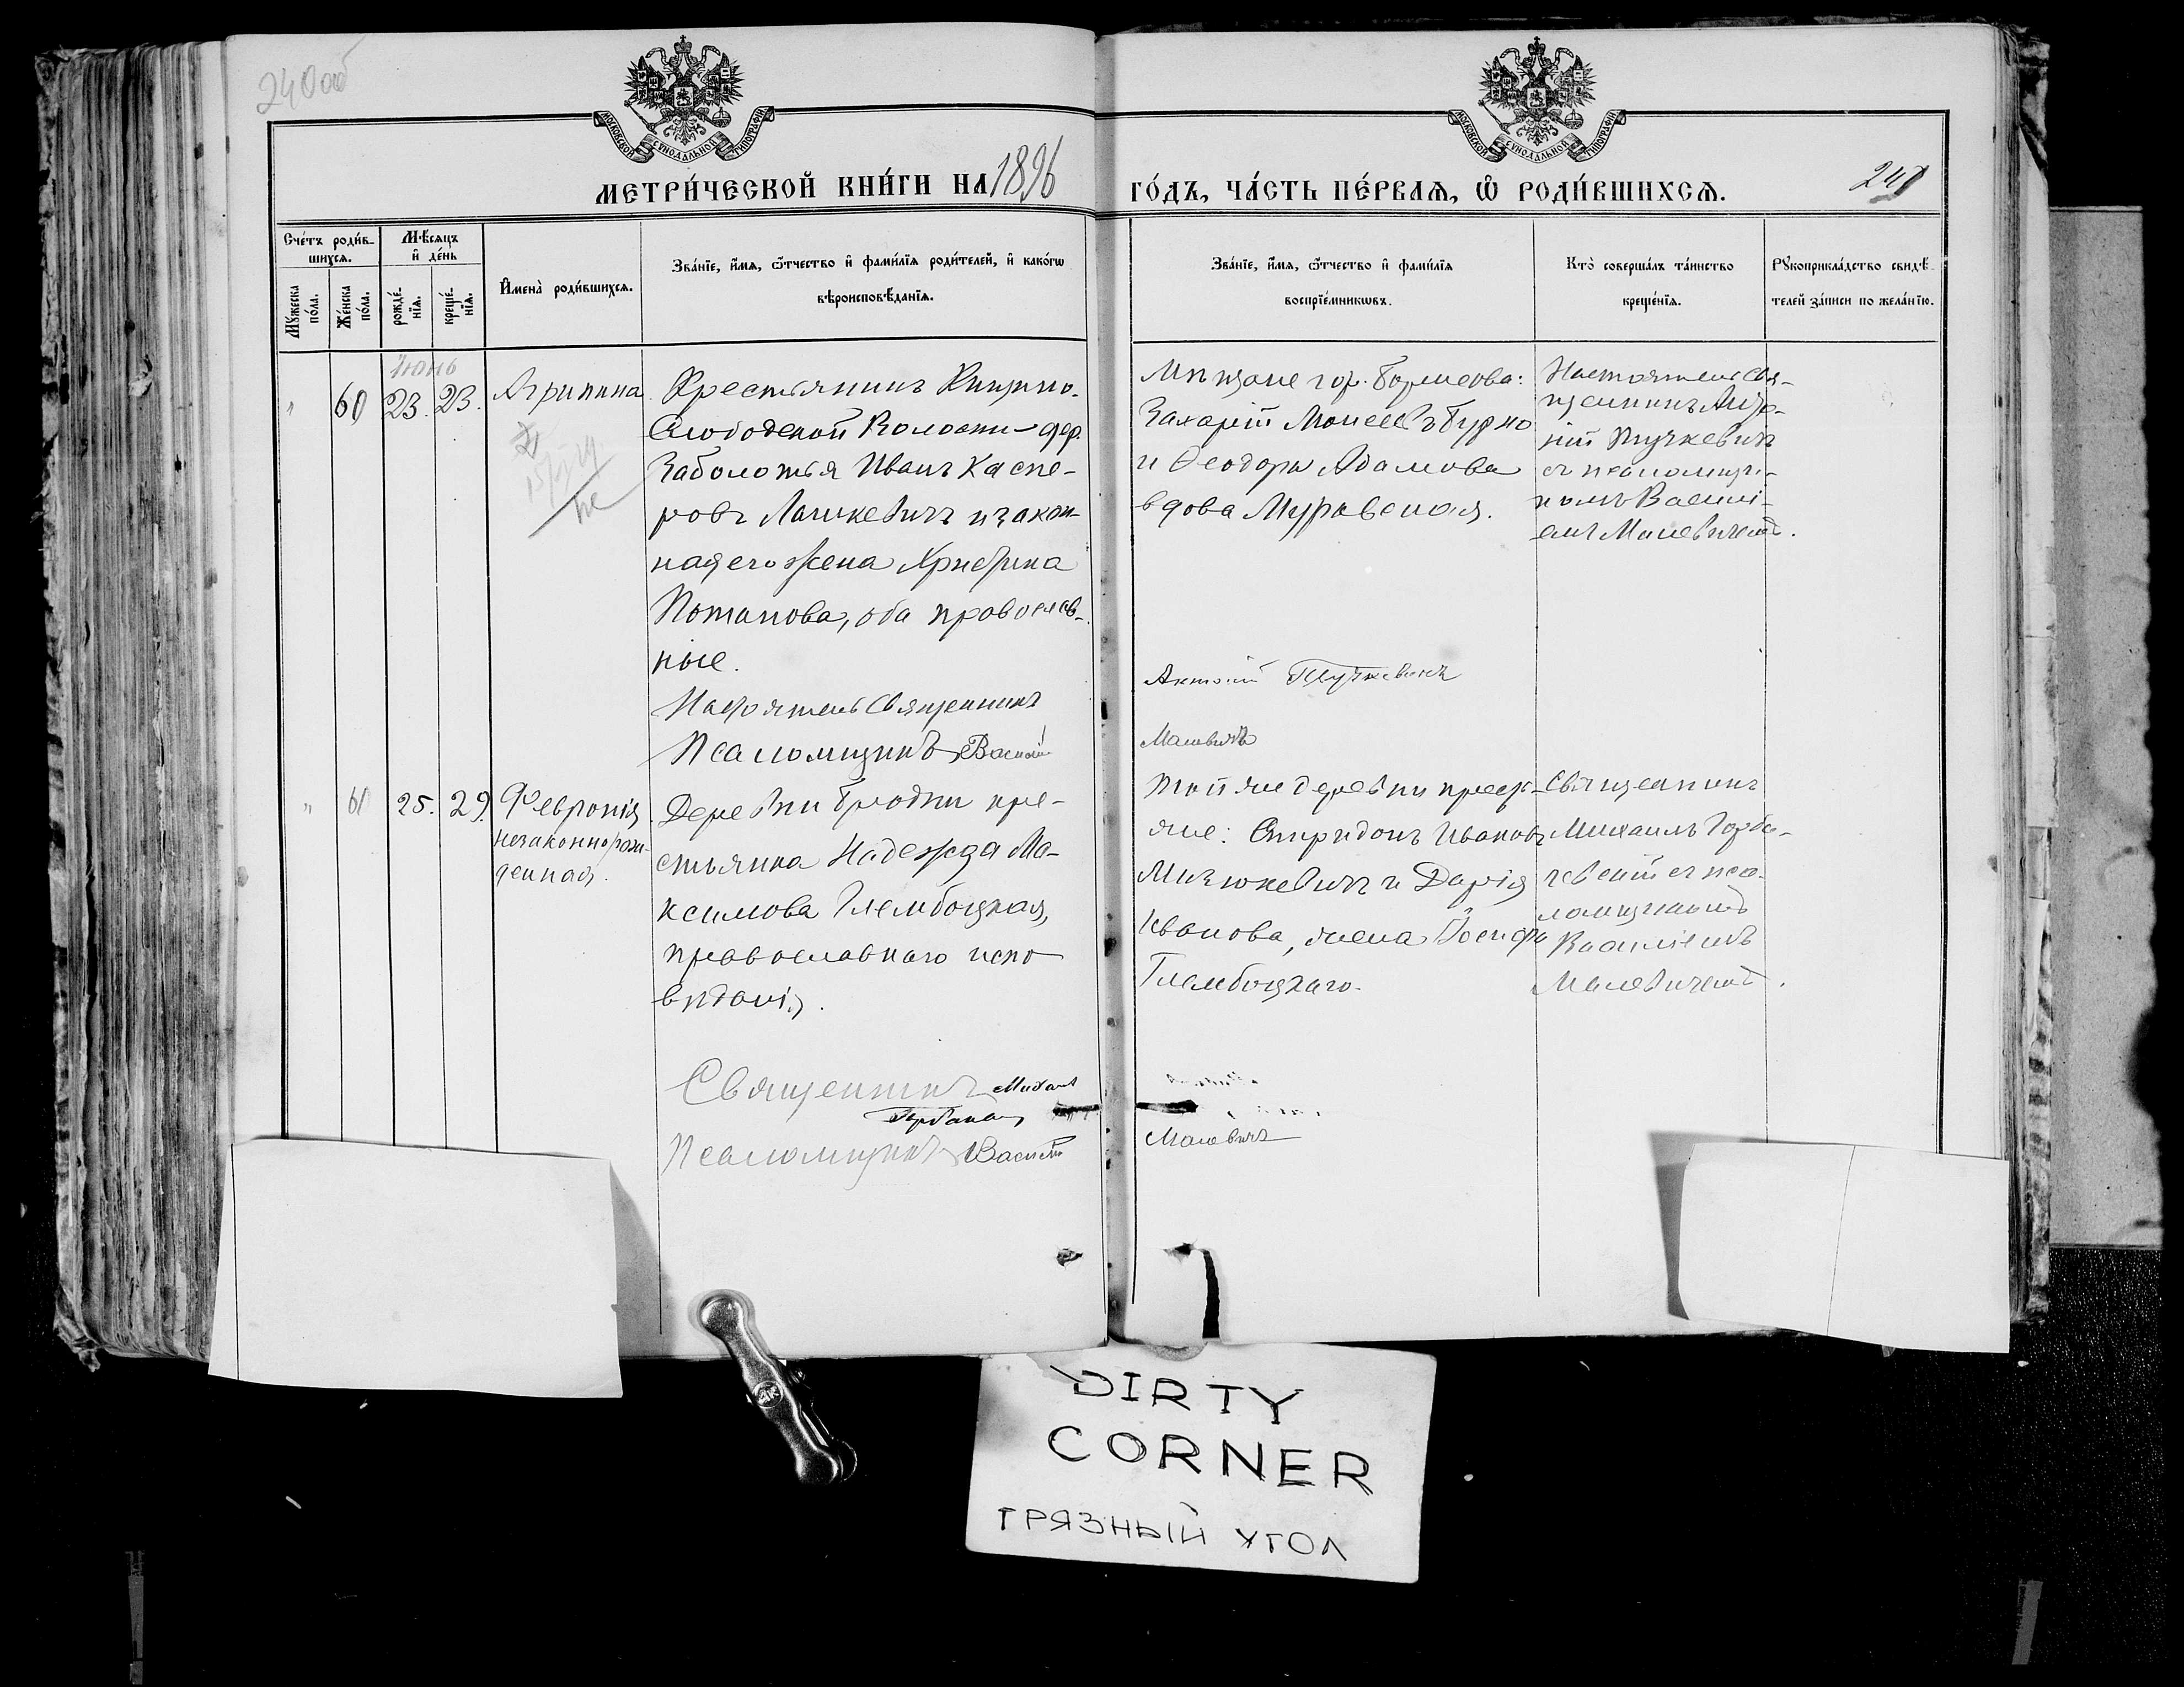 240 об
МОСКОВСКОЙ СѴНОДАЛЬНОЙ ТИПОГРАФІИ
МОСКОВСКОЙ СѴНОДАЛЬНОЙ ТИПОГРАФІИ
МЕТРИ́ЧЕСКОЙ КНИ́ГИ НА 1896
ГО́ДЪ, ЧА́СТЬ ПЕ́РВАѦ, Ѽ РОДИ́ВШИХСѦ.
Сче́тъ роди́в-
шихсѧ.
Мꙋ́жеска
по́ла.
Же́нска
по́ла.
Мѣ́сѧцъ
и҆ де́нь
рожде́-
нїѧ.
креще́-
нїѧ.
И҆мена̀ роди́вшихсѧ.
Зва́нїе, и҆́мѧ, ѻ҆́тчество и҆ фами́лїѧ роди́телей, и҆ како́гѡ
вѣроисповѣ́данїѧ.
Зва́нїе, и҆́мѧ, ѻ҆́тчество и҆ фами́лїѧ
воспрїе́мникѡвъ.
Кто̀ соверша́лъ та́инство
креще́нїѧ.
Рꙋкоприкла́дство свидѣ́-
телей за́писи по жела́нїю.
Іюнь
" 60 23. 23. Агрипина
Крестьянинъ
Слободской Волости дер.
Заболотья Иванъ Каспе-
ровъ Лашкевичъ и закон-
ная его жена Христина
Потапова, оба православ-
ные.
Настоятель Священникъ
Псаломщикъ Василій
Мѣщане гор. Борисова:
Захарій Моисеевъ
и Ѳеодора Адамова
вдова Муравская.
Антоній Тучкевичъ
Малевичъ
Настоятель Свя-
щенникъ Анто-
ній Тучкевичъ
съ псаломщи-
комъ Васи­лі-
емъ Малевичемъ.
" 61 25. 29. Февронія
незаконнорож-
денная.
Деревни Бродни кре-
стьянка Надежда Ма-
ксимова Глембоцкая,
православнаго испо-
вѣданія.
Священникъ Михаилъ
Псаломщикъ Василій
Той же деревни крест-
яне: Спиридонъ Ивановъ
Мизюкевичъ и Дарія
Иванова, жена Іосифа
Глембоцкаго.
Малевичъ
Священникъ
Михаилъ Горба-
чевскій съ пса-
ломщикомъ
Василіемъ
Малевичемъ.
DIRTY
CORNER
ГРЯЗНЫЙ УГОЛ